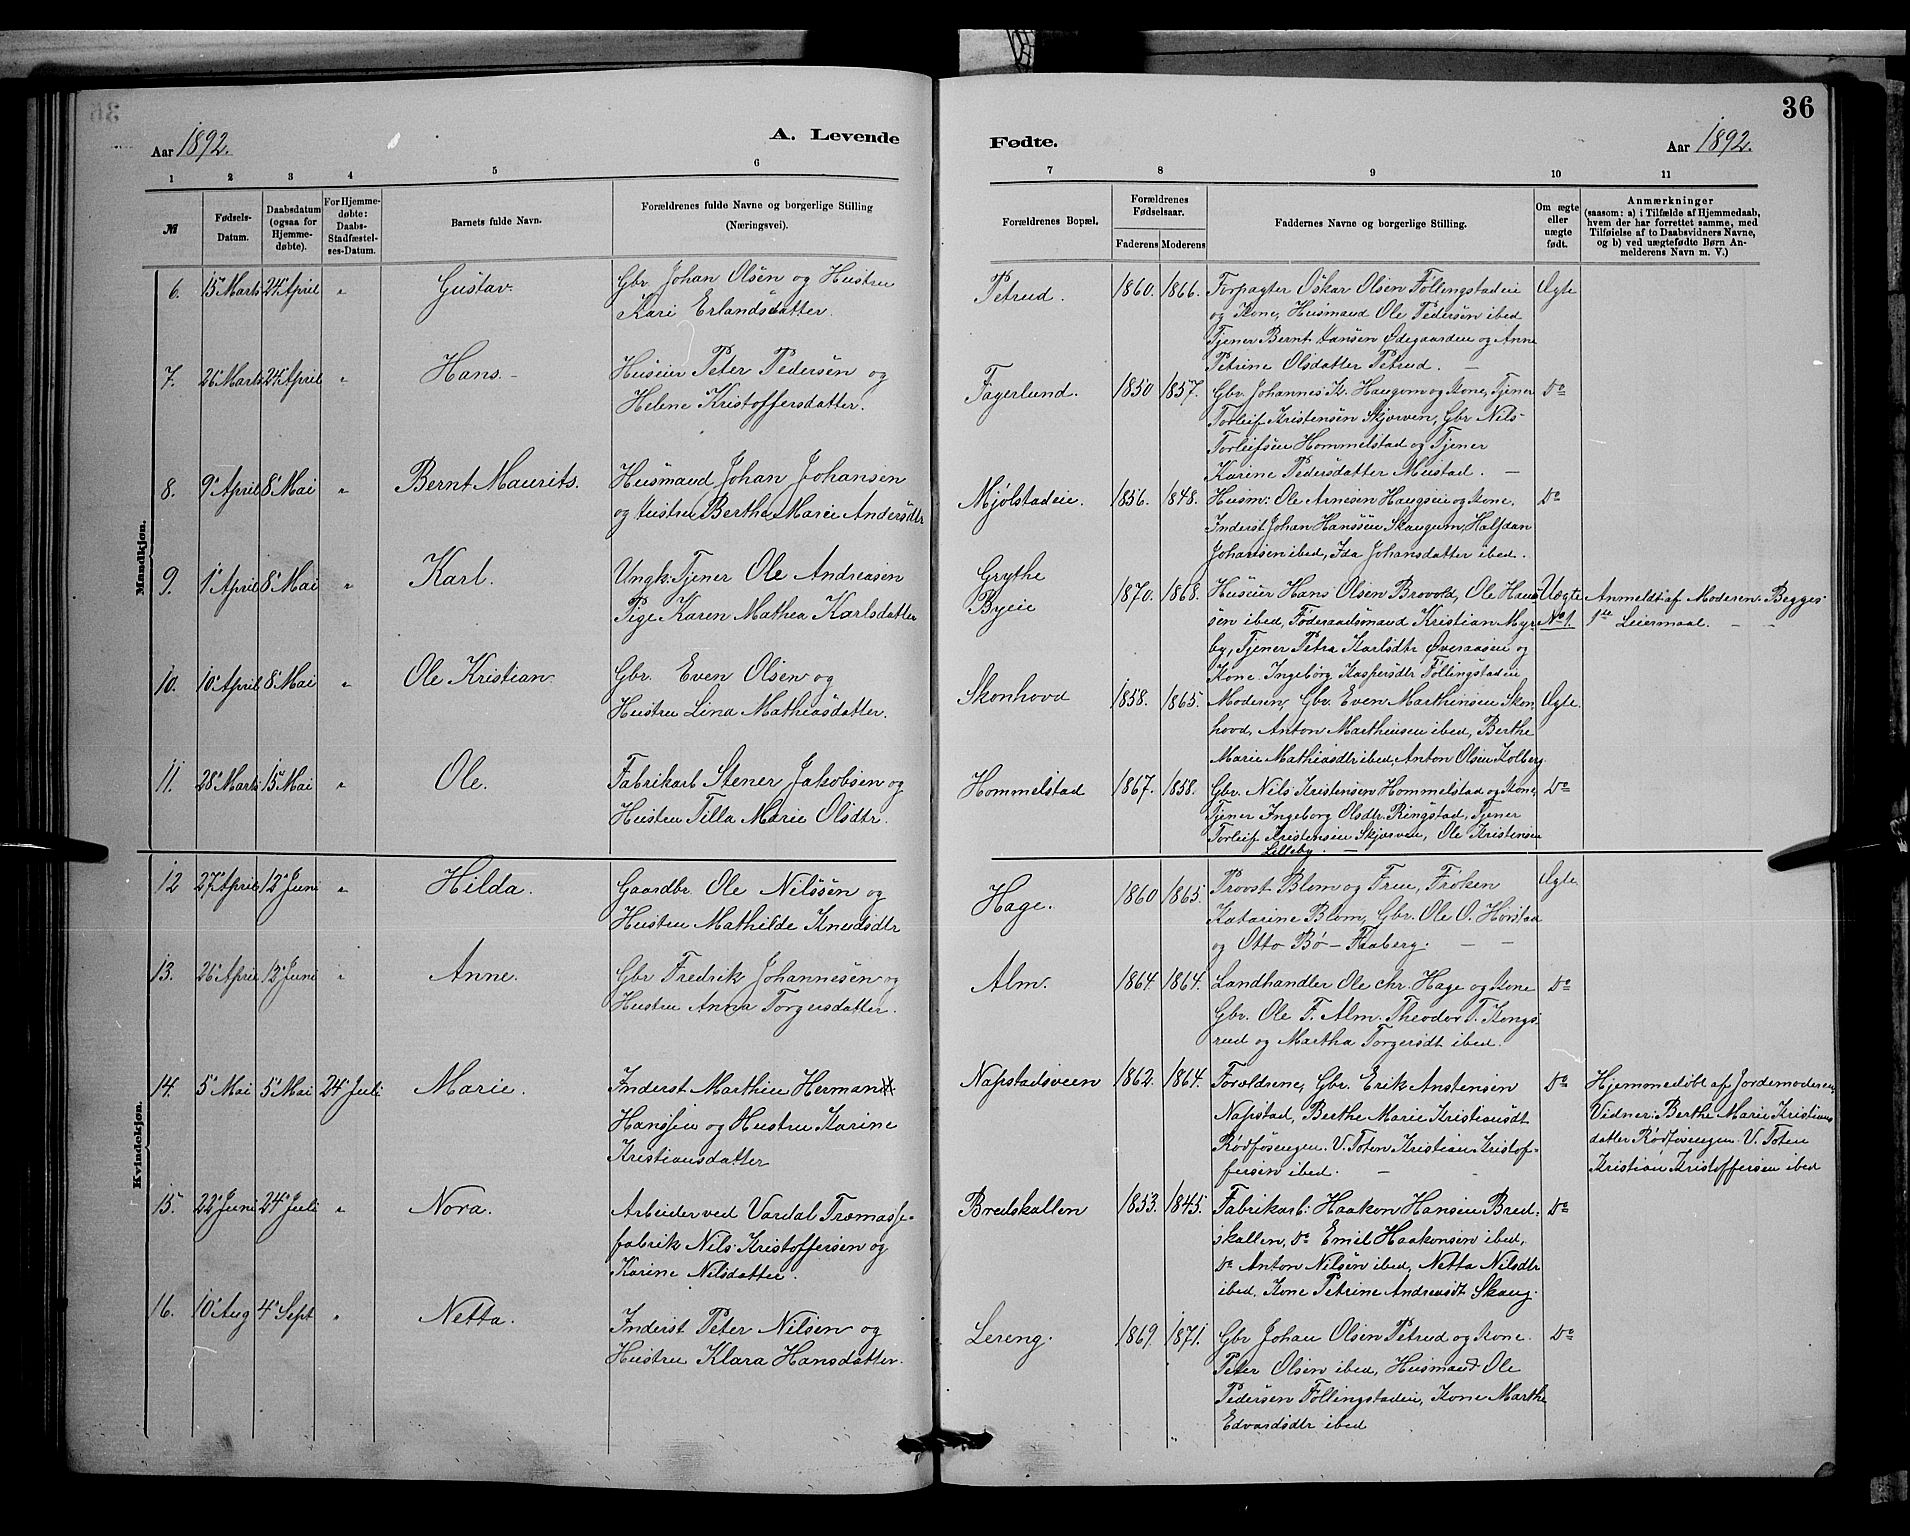 36
Aar 1892.
A. Levende Fødte.
Aar 1892.
1 2 3 4 5 6 7 8 9 10 11
№
Fødsels-
Datum.
Daabsdatum
(ogsaa for
Hjemme-
døbte).
For Hjemme-
døbte:
Daabs-
Stadfæstel-
ses-Datum.
Barnets fulde Navn.
Forældrenes fulde Navne og borgerlige Stilling
(Næringsvei).
Forældrenes Bopæl.
Forældrenes
Fødselsaar.
Faderens Moderens
Faddernes Navne og borgerlige Stilling.
Om ægte
eller
uægte
født.
Anmærkninger
(saasom: a) i Tilfælde af Hjemmedaab,
hvem der har forrettet samme, med
Tilføielse af to Daabsvidners Navne,
og b) ved uægtefødte Børn An-
melderens Navn m. V.)
Mandkjøn.
6. 15de Marts 24de April " Gustav. Gbr. Johan Olsen og Hustru
Kari Erlandsdatter.
Petrud. 1860. 1866. Forpagter Oskar Olsen Føllingstadeie Ægte
og Kone, Husmand Ole Pedersen ibed
Tjener Bernt Hansen Ødegaarden og Anne
Petrine Olsdatter Petrud. —
7. 26de Marts 24de April " Hans. - Huseier Peter Pedersen og
Helene Kristoffersdatter.
Fagerlund. 1850 1857. Gbr. Johannes K. Haugom og Kone, Tjener Do
Torleif Kristensen Skjerven, Gbr Nils
Torleifsen Hommelstad og Tjener
Karine Pedersdatter Mustad. —
8. 9de April 8de Mai " Bernt Maurits. Husmand Johan Johansen
og Hustru Bertha Marie Andersdtr
Mjølstadeie. 1856. 1848. Husm: Ole Arnesen Haugseie og Kone. Do
Inderst Johan Hanssen Skaugum, Halfdan
Johansen ibed, Ida Johansdatter ibed.
9. 1de April 8de Mai " Karl. Ungk: Tjener Ole Andreasen
Pige Karen Mathea Karlsdatter
Grythe
Byeie 1870. 1868. Huseier Hans Olsen Brovold, Ole Hans- Uægte Anmeldt af Moderen. Begges
sen ibed, Føderaadsmand Kristian Myr- No 1. 1ste Leiermaal. — —
by, Tjener Petra Karlsdtr Øveraasen og
Kone Ingeborg Kaspersdtr Føllingstadeie
10. 10de April 8de Mai " Ole Kristian. Gbr. Even Olsen og
Hustru Lina Mathiasdatter.
Skonhovd 1858. 1865. Moderen, Gbr. Even Marthinsen Skon- Ægte.
hovd, Anton Marthinsen ibed, Berthe
Marie Mathiasdtr ibed Anton Olsen Kolberg.
11. 28de Marts 15de Mai " Ole. Fabrikarb. Stener Jakobsen og
Hustru Tilla Marie Olsdtr.
Hommelstad 1867. 1858. Gbr. Nils Kristensen Hommelstad og Kone, Do
Tjener Ingeborg Olsdtr. Ringstad, Tjener
Torleif Kristensen Skjerven, Ole Kristensen
Lilleby. —
Kvindekjøn.
12 27de April 12de Juni " Hilda. Gaardbr Ole Nilssen og
Hustru Mathilde Knudsdtr
Hage. 1860 1865. Provst Blom og Frue, Frøken Ægte
Katarine Blom, Gbr. Ole O. Horstad
og Otto Bø - Faaberg. — —
13. 26de April 12de Juni " Anne. Gbr Fredrik Johannesen og
Hustru Anna Torgersdatter.
Alm. 1864. 1864. Landhandler Ole Chr. Hage og Kone Do
Gbr. Ole F. Alm. Theodor T. Kongs-
rud og Martha Torgersdt ibed.
14. 5de Mai 5de Mai 24de Juli Marie. Inderst Marthin Herman
Hanssen og Hustru Karine
Kristiansdatter
Napstadsveen 1862. 1864. Forældrene, Gbr. Erik Anstensen Do Hjemmedøbt af Jordemoderen,
Napstad, Berthe Marie Kristiansdt Vidner: Berthe Marie Kristians
Rødfosengen. V. Toten Kristian Kristof- datter Rødfosengen. V. Toten
fersen ibed. — — Kristian Kristoffersen ibed
15. 22de Juni 24de Juli " Nora. Arbeider ved Vardal Træmasse-
fabrik Nils Kristoffersen og
Karine Nilsdatter.
Bredskallen 1853. 1845. Fabrikarb: Haakon Hansen Bred- Do
skallen, Do Emil Haakonsen ibed,
Do Anton Nilsen ibed, Netta Nilsdtr
ibed, Kone Petrine Andreasdt Skaug.
16. 10de Aug 4de Sept " Netta. Inderst Peter Nilsen og
Hustru Klara Hansdatter.
Lereng. 1869. 1871. Gbr Johan Olsen Petrud og Kone. Do
Peter Olsen ibed, Husmand Ole
Pedersen Føllingstadeie, Kone Marthe
Edvardsdtr ibed